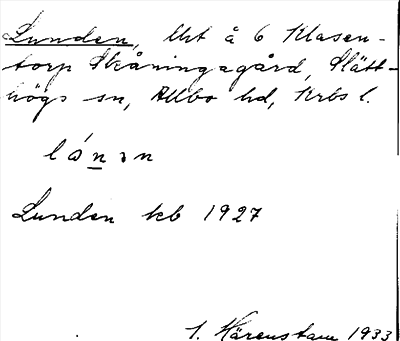 Lunden, lht å 6 Klasen-
torp Skåningagård, Slätt-
högs sn, Allbo hd, Krbs l.
lónən
Lunden kb 1927
1. Härenstam 1933